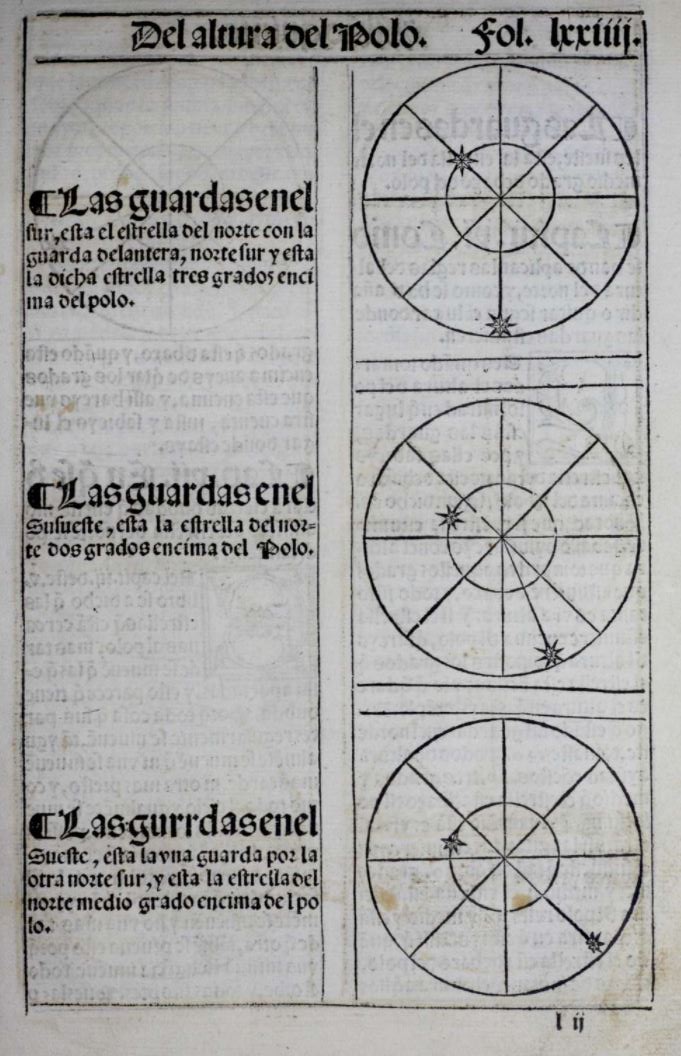 Del altura del Polo. Fol. lxxiiij.
¶Las guardas enel
sur, esta el estrella del norte con la
guarda delantera, norte sur y esta
la dicha estrella tres grados enci
ma del polo.
¶Las guardas enel
Susueste, esta la estrella del nor=
te dos grados encima del Polo.
¶Las gurrdas enel
Sueste, esta la vna guarda por la
otra norte sur, y esta la estrella del
norte medio grado encima de l po
lo.
l ij